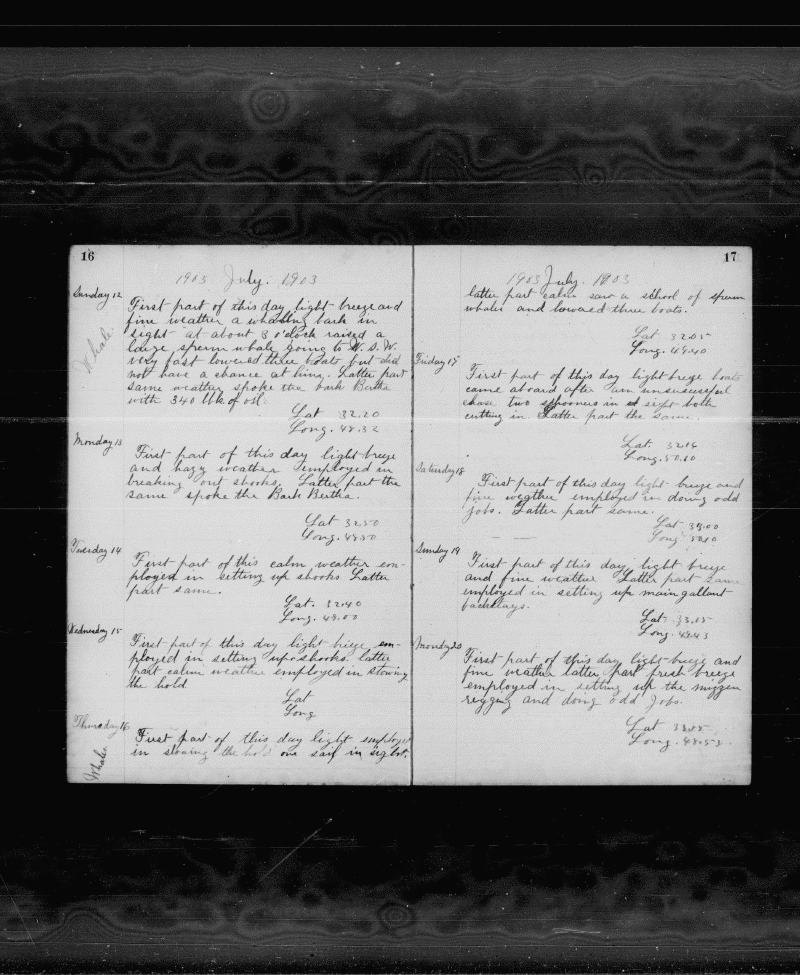 16
1903 July. 1903
Sunday 12
First part of this day light breeze and
fine weather a whaling bark in
sight at about 8 o'clock raised a
large sperm whale going to W. S. W.
very fast lowered three boats but did
not have a chance at him. Latter part
same weather spoke the bark Bertha
with 340 bbls of oil.
Whale
Lat 32.20
Long. 48.32
Monday 13
First part of this day light breeze
and hazy weather employed in
breaking out shooks. Latter part the
same spoke the Bark Bertha.
Lat 32.50
Long. 48.50
Tuesday 14
First part of this calm weather em-
ployed in setting up shooks Latter
part same.
Lat. 32.40
Long. 49.00
Wednesday 15
First part of this day light breeze em-
ployed in setting up shooks. latter
part calm weather employed in stowing
the hold
Lat
Long
Thursday 16
First part of this day light employed
in stowing the hold one sail in sight.
Whale
17
1903 July. 1903
latter part calm saw a school of sperm
whales and lowered three boats.
Lat 32.05
Long. 49.40
Friday 17
First part of this day light breeze boats
came aboard after an unsucsessful
chase two schooners in sight both
cutting in. Latter part the same.
Lat. 32.16
Long. 50.10
Saturday 18
First part of this day light breeze and
fine weather employed in doing odd
jobs. Latter part same.
Lat 33.00
Long 50.10
Sunday 19
First part of this day light breeze
and fine weather Latter part same
employed in setting up main gallant
backstays.
Lat. 33.05
Long. 49.43
Monday 20
First part of this day light breeze and
fine weather latter part fresh breeze
employed in setting up the mizzen
rigging and doing odd jobs.
Lat 33.55
Long. 48.53